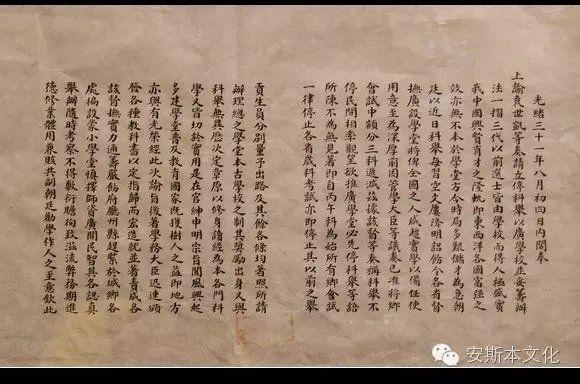 光緒三十一年八月初四日內閣奉
上諭袁世凱等奏請立停科舉以廣學校並妥籌辦
法一摺三代以前選士皆由學校而得人極盛實
我中國興賢育才之隆軌即東西洋各國富強之
效亦無不本於學堂方今時局多艱儲才為急朝
廷以近日科舉每習空文屢降明詔飭令各省督
撫廣設學堂將俾全國之人咸趨實學以備任使
用意至為深厚前因管學大臣等議奏已准將鄉
會試中額分三科遞減茲據該督等奏稱科舉不
停民間相率觀望欲推廣學堂必先停科舉等語
所陳不為無見著即自丙午科為始所有鄉會試
一律停止各省歲科考試亦即停止其以前之舉
貢生員分別量予出路及其餘各條均著照所請
辦理總之學堂本古學校之制其獎勵出身又與
科舉無異歷次定章原以修身讀經為本各門科
學又皆切於實用是在官紳申明宗旨聞風興起
多建學堂普及教育國家既獲樹人之益即地方
亦與有光榮經此次諭旨後著學務大臣迅速頒
發各種教科書以定指歸而宏造就並著責成各
該督撫實力通籌嚴飭府廳州縣趕緊於城鄉各
處徧設蒙小學堂慎擇師資廣開民智其各認真
舉辦隨時考察不得敷衍瞻徇致滋流弊務期進
德修業體用兼賅共副朝廷勸學作人之至意欽此
安斯本文化